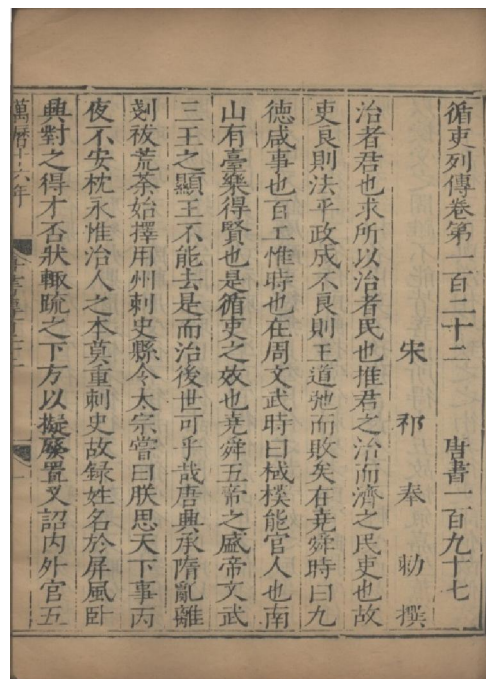 循吏列傳卷第一百二十二　唐書一百九十七
宋祁奉敕撰
治者君也求所以治者民也推君之治而濟之民吏也故
吏良則法平政成不良則王道弛而敗矣在堯舜時曰九
德咸事也百工惟時也在周文武時曰棫樸能官人也南
山有臺樂得賢也是循吏之效也堯舜五帝之盛帝文武
三王之顯王不能去是而治後世可乎哉唐興承隋亂離
剗祓荒荼始擇用州刺史縣令太宗嘗曰朕思天下事丙
夜不安枕永惟治人之本莫重刺史故錄姓名於屏風臥
興對之得才否狀輙疏之下方以擬廢置又詔內外官五
萬曆十六年